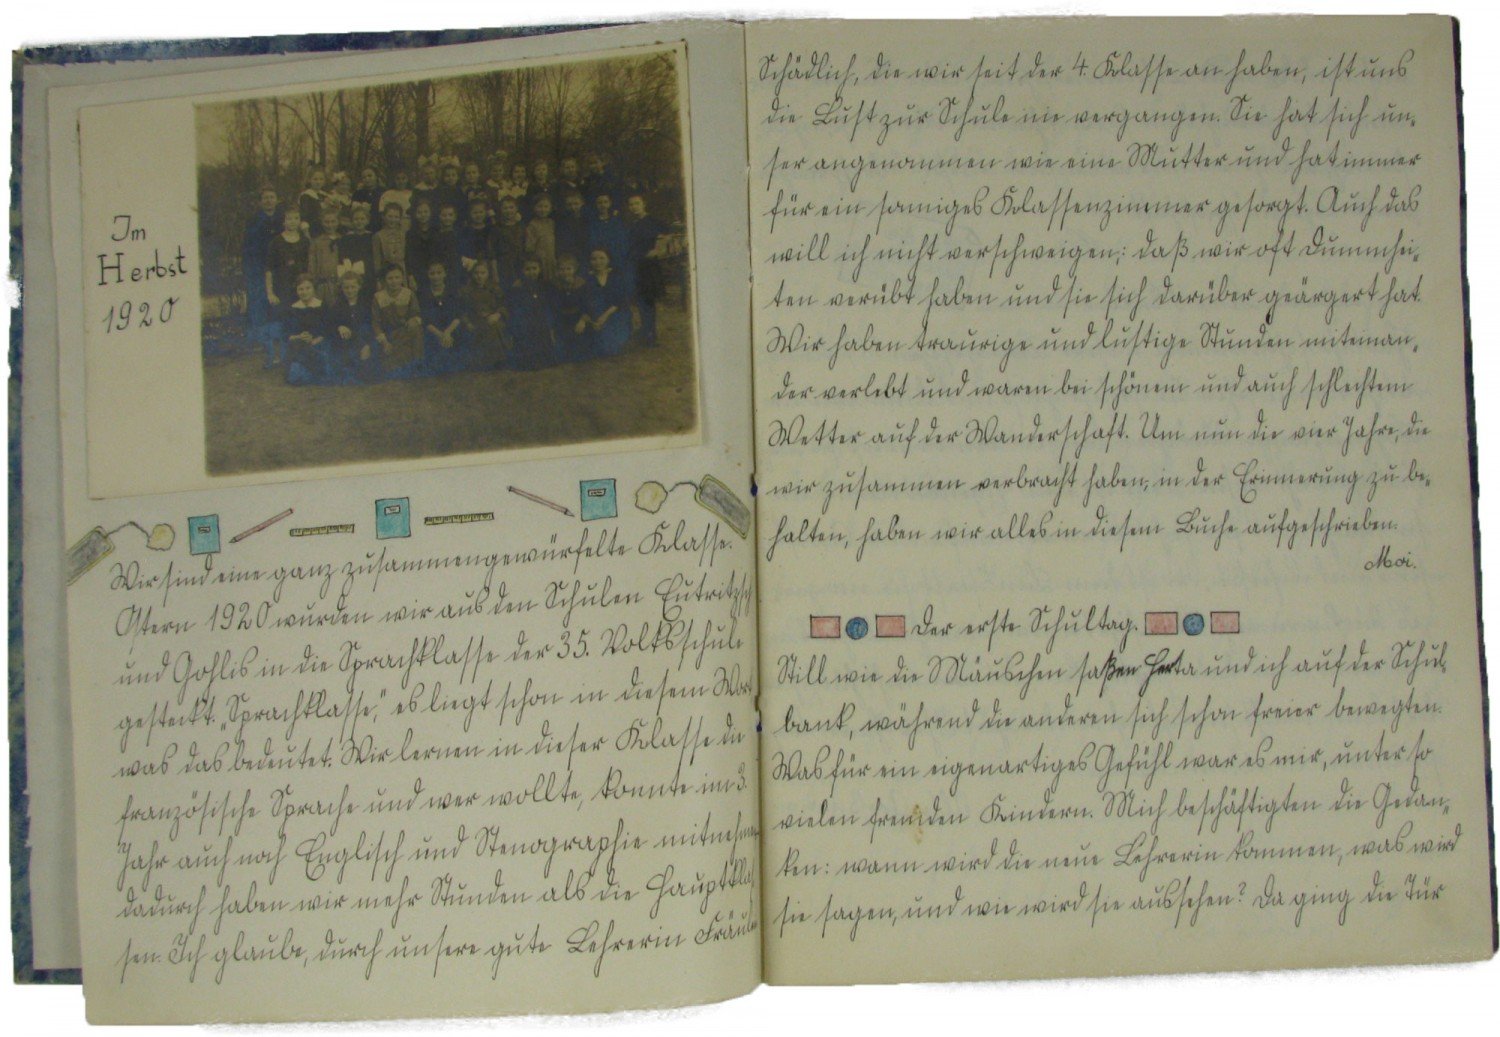 Im
Herbst
1920
Wir sind eine ganz zusammengewürfelte Klasse.
Ostern 1920 wurden wir aus den Schulen Eutritzsch
und Gohlis in die Sprachklasse der 35. Volksschule
gesteckt. „Sprachklasse,“ es liegt schon in diesem Wort
was das bedeutet. Wir lernen in dieser Klasse die
französische Sprache und wer wollte, konnte im 3.
Jahr auch noch Englisch und Stenographie mitnehmen
dadurch haben wir mehr Stunden als die Hauptklas
sen. Ich glaube, durch unsere gute Lehrerin Fräulein
Schädlich, die wir seit der 4. Klasse an haben, ist uns
die Lust zur Schule nie vergangen. Sie hat sich un-
ser angenommen wie eine Mutter und hat immer
für ein sonniges Klassenzimmer gesorgt. Auch das
will ich nicht verschweigen,: daß wir oft Dummhei-
ten verübt haben und sie sich darüber geärgert hat.
Wir haben traurige und lustige Stunden miteinan-
der verlebt und waren bei schönem und auch schlechtem
Wetter auf der Wanderschaft. Um nun die vier Jahre, die
wir zusammen verbracht haben, in der Erinnerung zu be-
halten, haben wir alles in diesem Buche aufgeschrieben.
Moi.
Der erste Schultag.
Still wie die Mäuschen saßen Herta und ich auf der Schul-
bank, während die anderen sich schon freier bewegten.
Was für ein eigenartiges Gefühl war es mir, unter so
vielen fremden Kindern. Mich beschäftigten die Gedan-
ken: wann wird die neue Lehrerin kommen, was wird
sie sagen, und wie wird sie aussehen? Da ging die Tür